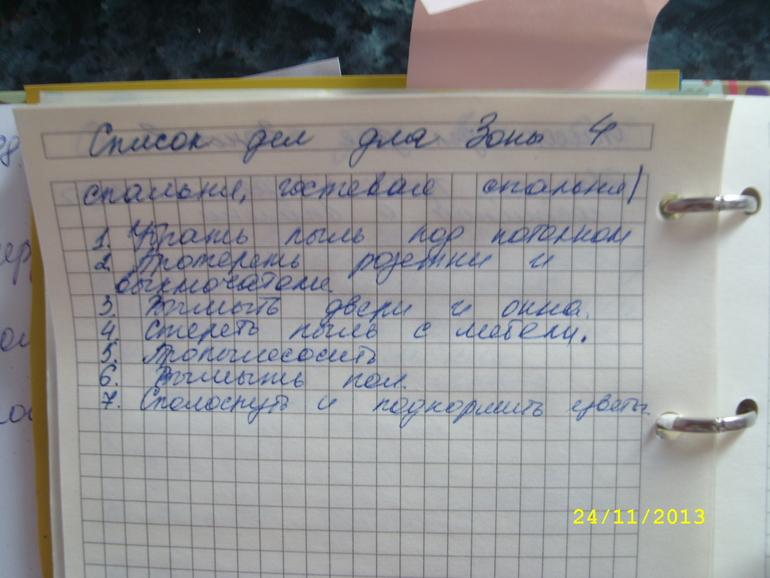 Список дел для Зоны 4
спальня, гостевая спальня/
1. Убрать пыль под потолком
2. Протереть розетки и
выключатели.
3. Вымыть двери и окна.
4. Стереть пыль с мебели.
5. Пропылесосить
6. Вымыть пол.
7. Сполоснуть и подкормить цветы.
24/11/2013